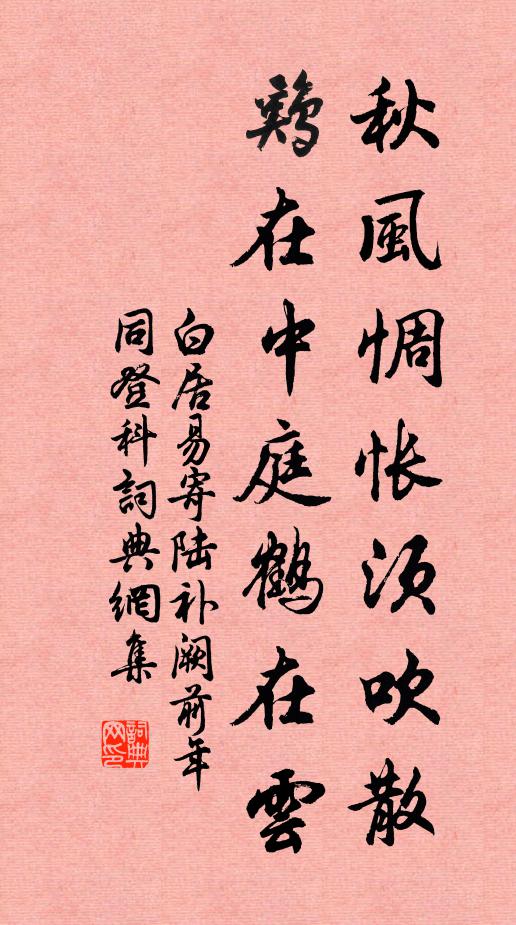 秋風惆悵須吹散
鷄在中庭鶴在雲
白居易寄陸補闕前年
同登科詞典網集
詞典
网印